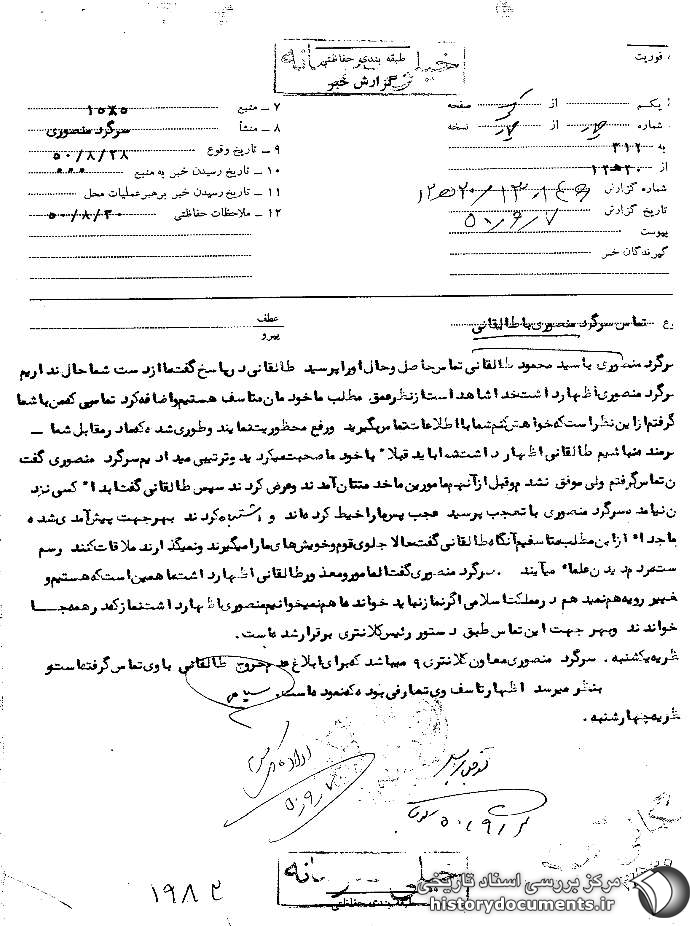 طبقه بندی حفاظتی
خیلی محرمانه
گزارش خبر
فوریت
یکم از صفحه
شماره از نسخه
به ۳۱۲
از ۱۲ ه ۲۰
شماره گزارش
تاریخ گزارش
پیوست
گیرندگان خبر
۷ ـ منبع
۸ ـ منشأ سرگرد منصوری
۹ ـ تاریخ وقوع ۵۰/۸/۲۸
۱۰ ـ تاریخ رسیدن خبر به منبع
۱۱ ـ تاریخ رسیدن خبر برهبر عملیات محل
۱۲ ـ ملاحظات حفاظتی ۵۰/۸/۳۰
عطف
پیرو
تماس سرگرد منصوری با طالقانی
سرگرد منصوری با سید محمود طالقانی تماس حاصل و حال او را پرسید طالقانی در پاسخ گفته ما از دست شما حال نداریم
سرگرد منصوری اظهار داشته خدا شاهد است از نظر عمق مطلب ما خودمان متاسف هستیم و اضافه کرد تماسی که من با شما
گرفتم از این نظر است که خواهش کنم شما با اطلاعات تماس بگیرید و رفع محظوریت نمایند و طوری شده که ما در مقابل شما ـ
شرمنده نباشیم طالقانی اظهار داشته شما باید قبلا" با خود ما صحبت میکردید و ترتیبی میدادیم سرگرد منصوری گفت
من تماس گرفتم ولی موفق نشدم و قبل از آنهم مامورین ما خدمتتان آمدند و عرض کردند سپس طالقانی گفت ابدا" کسی نزد
من نیامده سرگرد منصوری با تعجب پرسید عجب پس ما را خیط کرده اند و اشتباه کردند بهر جهت پیش آمدی شده
ما جدا" از این مطلب متاسفیم آنگاه طالقانی گفت حالا جلوی قوم و خویش های ما را میگیرند و نمیگذارند ملاقات کنند رسم
است مردم دیدن علماء میآیند . سرگرد منصوری گفت المامور و معذور طالقانی اظهار داشت ما همین است که هستیم و
تغییر رویه هم نمیدهم در مملکت اسلامی اگر نماز نباید خواند ما هم نمیخوانیم منصوری اظهار داشته نماز که در همه جا
خواندند و بهر جهت این تماس طبق دستور رئیس کلانتری برقرار شده است .
نظریه یکشنبه . سرگرد منصوری معاون کلانتری ۹ میباشد که برای ابلاغ عدم خروج طالقانی با وی تماس گرفته است و
بنظر میرسد اظهار تاسف وی تعارفی بوده که نموده است .
نظریه چهارشنبه .
خیلی محرمانه
طبقه بندی حفاظتی
۱۹۸۲
مرکز بررسی اسناد تاریخی
historydocuments.ir